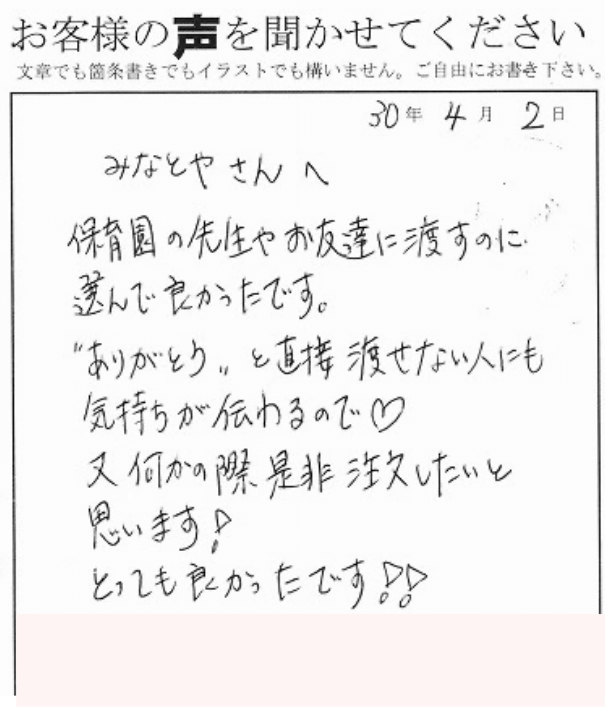 お客様の声を聞かせてください
文章でも箇条書きでもイラストでも構いません。ご自由にお書き下さい。
30年 4月 2日
みなとやさんへ
保育園の先生やお友達に渡すのに
選んで良かったです。
"ありがとう"と直接渡せない人にも
気持ちが伝わるので♡
又何かの際是非注文したいと
思います!
とっても良かったです!!